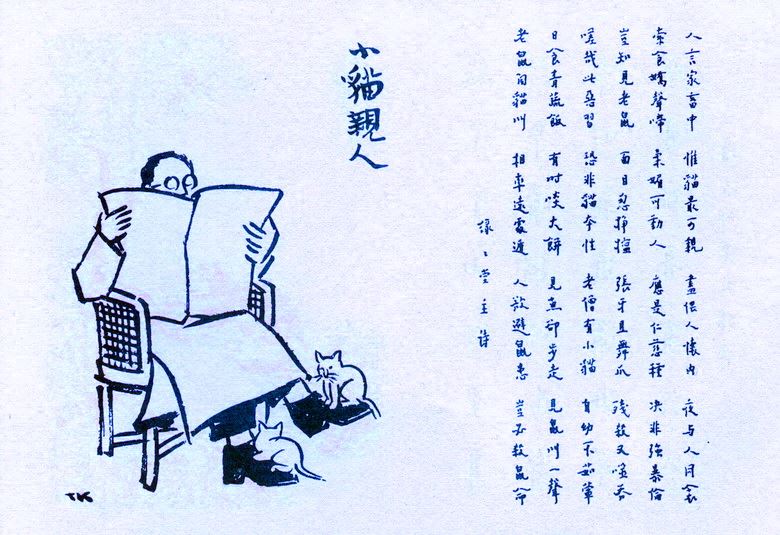 小貓親人
人言家畜中 惟貓最可親 晝偎人懷內 夜與人同衾
索食嬌聲啼 柔媚可動人 應是仁慈種 決非強暴倫
豈知見老鼠 面目忽猙獰 張牙且舞爪 殘殺又噬吞
嗟哉此惡習 恐非貓本性 老僧有小貓 自幼不茹葷
日食青蔬飯 有時啖大餅 見魚卻步走 見鼠叫一聲
老鼠聞貓叫 相率遠處遁 人欲避鼠患 豈必殺鼠命
緣〻堂主詩
TK